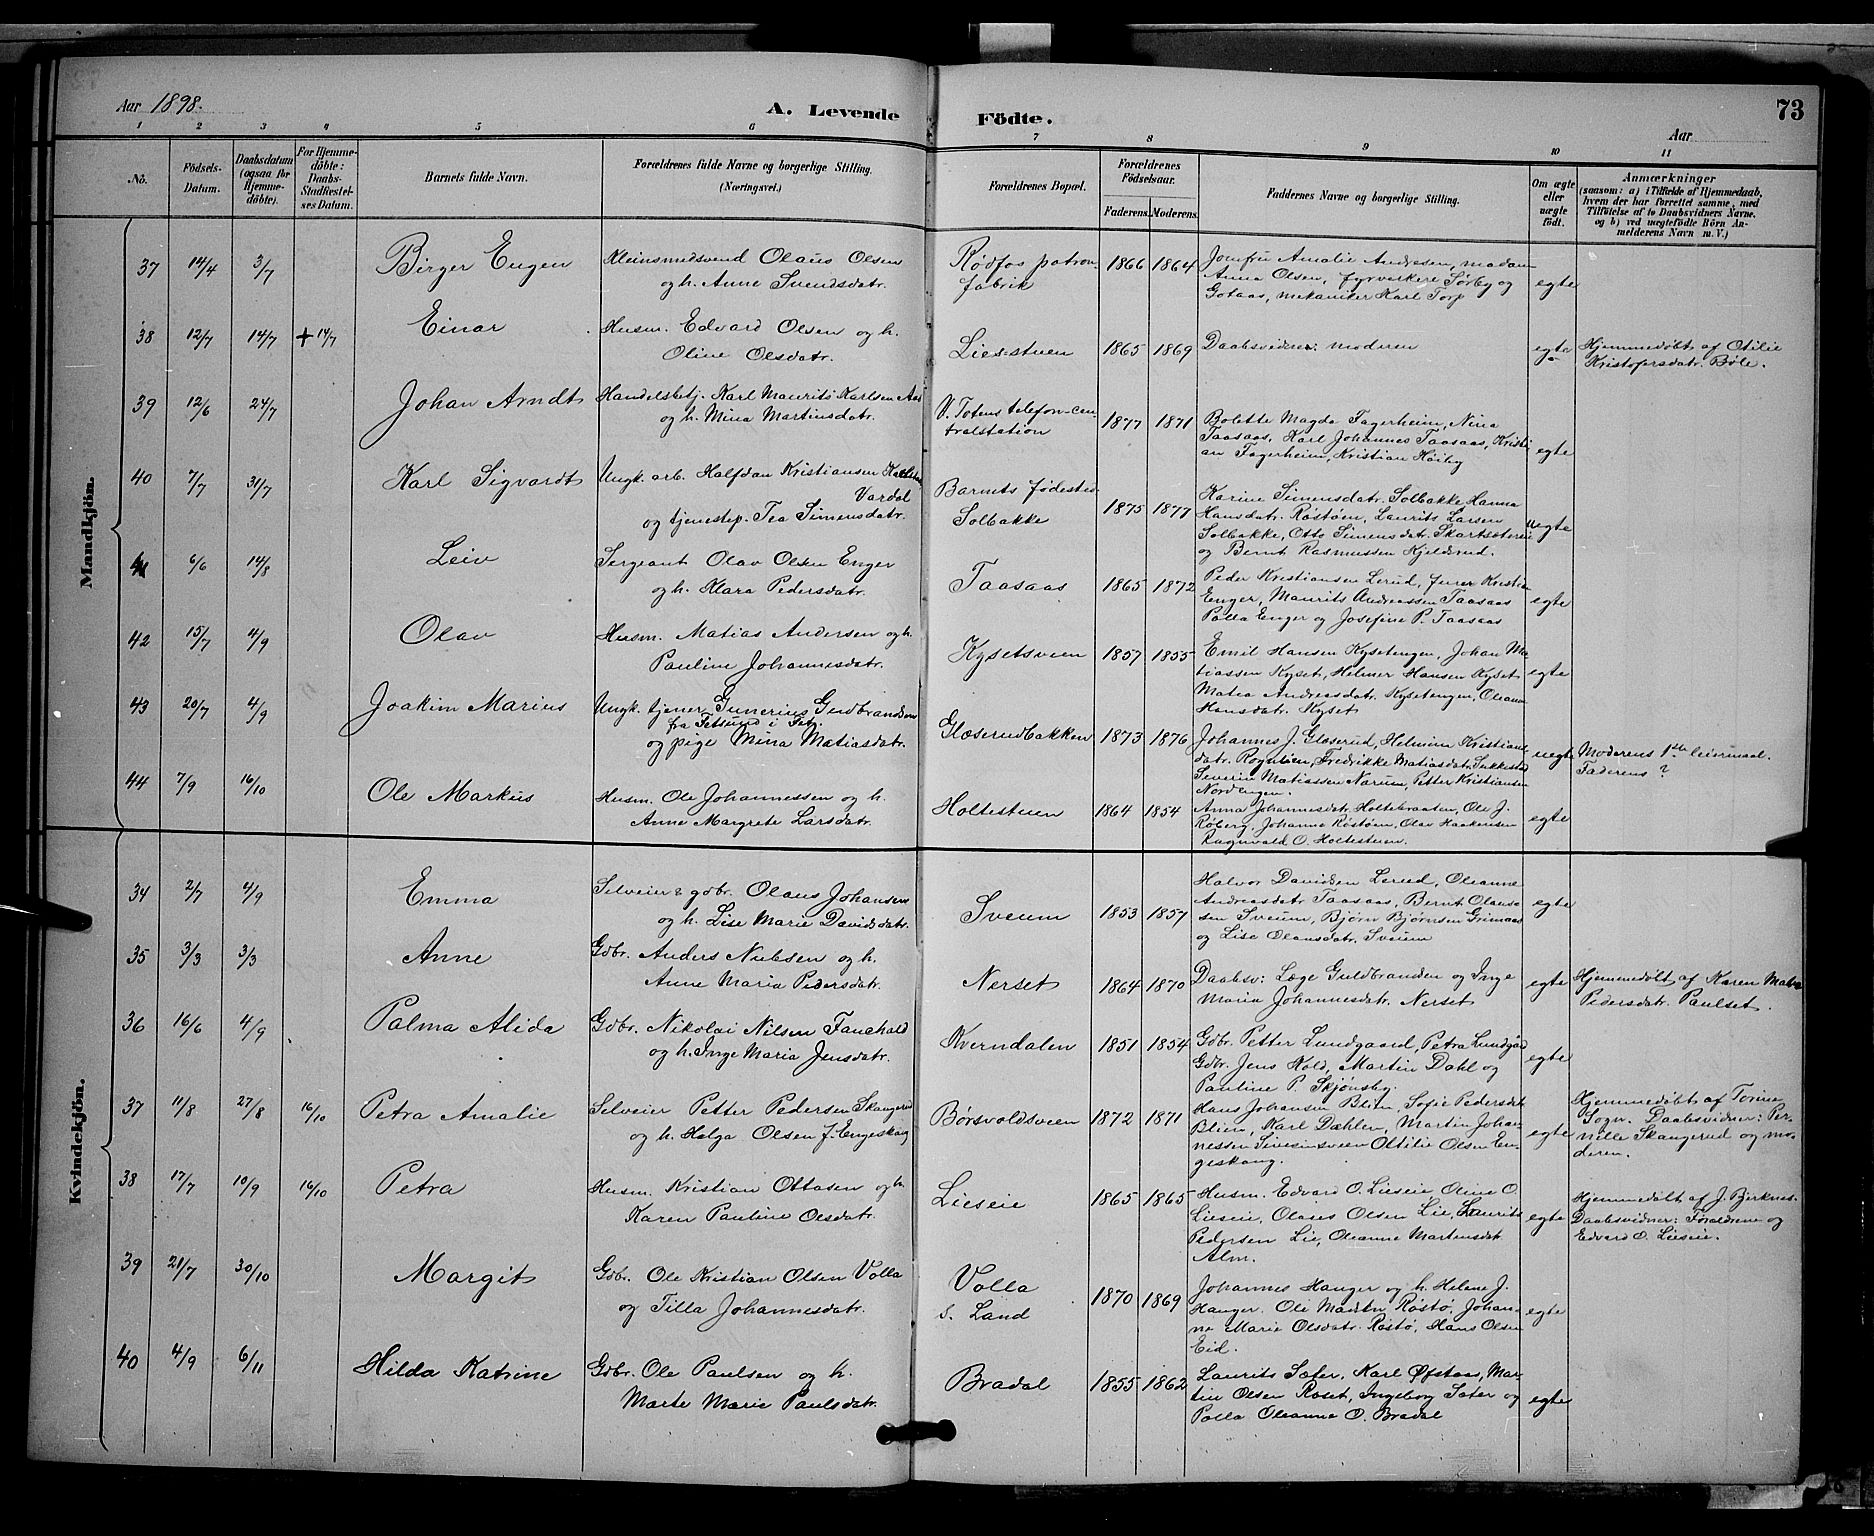 Aar 1898.
A. Levende
Födte.
73
Aar
1 2 3 4 5 6 7 8 9 10 11
No.
Födsels-Datum.
Daabsdatum (ogsaa for Hjemmedöbte).
For Hjemmedöbte: Daabs-Stadfæstelses Datum.
Barnets fulde Navn.
Forældrenes fulde Navne og borgerlige Stilling. (Næringsvei.)
Forældrenes Bopæl.
Forældrenes Födselsaar.
Faderens. Moderens.
Faddernes Navne og borgerlige Stilling.
Om ægte eller uægte födt.
Anmærkninger
(saasom: a) i Tilfælde af Hjemmedaab, hvem der har forrettet samme, med Tilföielse af to Daabsvidners Navne, og b) ved uægtefödte Börn Anmelderens Navn m. V.)
Mandkjön.
37 14/4 3/7 Birger Eugen
Kleinsmedsvend Olaus Olsen
og h. Anne Svendsdatr.
Rødfos patron-
fabrik
1866 1864
Jomfru Amalie Andresen, madam
Anna Olsen, fyrverkere Sørby og
Gotaas, mekaniker Karl Torp
egte
38 12/7 14/7 + 14/7 Einar
Husm. Edvard Olsen og h.
Oline Olsdatr.
Liesstuen 1865 1869
Daabsvidner: moderen
egte
Hjemmedøbt af Otilie
Kristofersdatr. Bøle.
39 12/6 24/7 Johan Arndt
Handelsbetj. Karl Maurits Karlsen Aas
og h. Mina Martinsdatr.
V. Totens telefon-cen-
tralstation
1877 1871
Bolette Magda Fagerheim, Nina
Taasaas, Karl Johannes Taasaas, Kristi-
an Fagerheim, Kristian Høiby
egte
40 7/7 31/7 Karl Sigvardt
Ungk. arb. Halfdan Kristiansen
Vardal
og tjenestep. Tea Simensdatr.
Barnets fødested
Solbakke
1875 1877
Karine Simensdatr. Solbakke Hanna
Hansdatr. Røstøen, Laurits Larsen
Solbakke, Otto Simensdatr.
og Bernt Rasmussen Kjelderud.
uegte
41 6/6 14/8 Leiv
Sergeant Olav Olsen Enger
og h. Klara Pedersdatr.
Taasaas 1865 1872
Peder Kristiansen Lerud, Kristia
Enger, Maurits Andreassen Taasaas
Palla Enger og Josefine P. Taasaas
egte
42 15/7 4/9 Olav
Husm. Matias Andersen og h.
Pauline Johannesdatr.
Kysetsveen 1857 1855
Emil Hansen Kysetengen, Johan Ma-
tiassen Kyset, Helmer Hansen Kyset
Matea Andreasdatr. Kysetengen, Oleanna
Hansdatr. Kyset
egte
43 20/7 4/9 Joakim Marius
Ungk. tjener Gunerius Gudbrandsen
fra Fetsund i Fet.
og pige Mina Matiasdatr.
Glæserudbakken 1873 1876
Johannes J. Glæserud, Helmine Kristians-
datr. Rognløen, Fredrikke Matiasdatr. Sukkestad
Severin Matiassen Narum, Petter Kristiansen
Nordengen.
uegte
Moderens 1ste leiermaal.
Faderens ?
44 7/9 16/10 Ole Markus
Husm. Ole Johannessen og h.
Anne Margrete Larsdatr.
Holtestuen 1864 1854
Anna Johannesdatr. Holtebraaten, Ole J.
Røberg, Johanne Røstøen, Olav Haakensen
Ragnvald O. Holtestuen.
egte
Kvindekjön.
34 2/7 4/9 Emma
Selveier & gdbr. Olaus Johansen
og h. Lise Marie Davidsdatr.
Sveum 1853 1857
Halvor Davidsen Lerud, Oleanne
Andreasdatr Taasaas, Bernt Olaus-
sen Sveum, Bjørn Bjørnsen Grimaas
og Lise Olausdatr. Sveum
egte
35 3/3 3/3 Anne
Gdbr. Anders Nielsen og h.
Anne Maria Pedersdatr.
Nerset 1864 1870
Daabsv: Læge Guldbrandsen og Inge
Maria Johannesdatr. Nerset
egte
Hjemmedøbt af Karen
Pedersdatr. Paulset.
36 16/6 4/9 Palma Alida
Gdbr. Nikolai Nilsen Fauchald
og h. Inge Maria Jensdatr.
Kverndalen 1851 1854
Gdbr. Petter Lundgaard, Petra Lundgård
Gdbr. Jens Kold, Martin Dahl og
Pauline P. Skjønsby.
egte
37 11/8 27/8 16/10 Petra Amalie
Selveier Petter Pedersen Skangerud
og h. Helga Olsen f. Engeskaug
Børsvoldsveen 1872 1871
Hans Johansen Blien, Sofie Pedersdatr
Blien, Karl Dæhlen, Martin Johan-
nessen Ottilie Olsen En-
geskaug.
egte
Hjemmedøbt af Tonine
Sogn. Daabsvidner: Per-
nille Skangerud og mo-
deren.
38 17/7 10/9 16/10 Petra
Husm. Kristian Ottosen og h.
Karen Pauline Olsdatr.
Lieseie 1865 1865
Husm. Edvard O. Lieseie, Oline O.
Lieseie, Olaus Olsen Lie, Laurits
Pedersen Lie, Oleanne Martensdatr.
Alm.
egte
Hjemmedøbt af J. Bjerknes.
Daabsvidner: Forældrene og
Edvard O. Lieseie.
39 21/7 30/10 Margit
Gdbr. Ole Kristian Olsen Volla
og Tilla Johannesdatr.
Volla
S. Land
1870 1869
Johannes Hanger og h. Helene J.
Hanger. Ole Madsen Røstø, Johan-
ne Marie Olsdatr. Røstø, Hans Olsen
Eid.
egte
40 4/9 6/11 Hilda Katrine
Gdbr. Ole Paulsen og h.
Marte Marie Paulsdatr.
Bradal 1855 1862
Laurits Sæter, Karl Øfstaas, Mar-
tin Olsen Roset, Ingeborg Sæter og
Palla Oleanna O. Bradal
egte